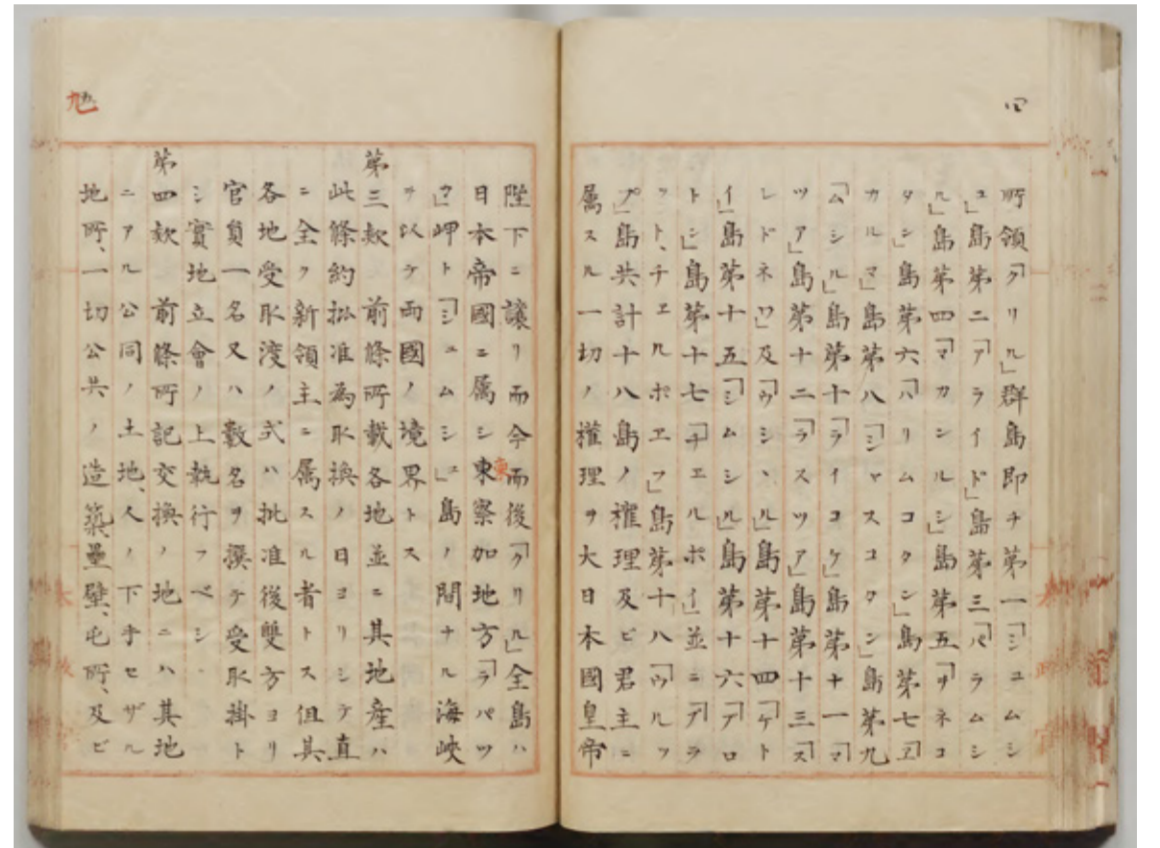 四
所領「クリル」群島即チ第一「シユムシ
ュ」島第二「アライド」島第三「パラムシ
ル」島第四「マカンルシ」島第五「ヲネコ
タン」島第六「ハリムコタン」島第七「エ
カルマ」島第八「シャスコタン」島第九
「ムシル」島第十「ライコケ」島第十一「マ
ツア」島第十二「ラスツア」島第十三「ス
レドネワ」及「ウシヽル」島第十四「ケト
イ」島第十五「シムシル」島第十六「ブロ
トン」島第十七「チエルポイ」並ニ「ブラ
ツト、チエルポエフ」島第十八「ウルッ
プ」島共計十八島ノ權理及ビ君主ニ
属スル一切ノ權理ヲ大日本國皇帝
陛下ニ讓リ而今而後「クリル」全島ハ
日本帝國ニ属シ東察加地方「ラパツ
カ」岬ト「シユムシュ」島ノ間ナル海峽
ヲ以テ両國ノ境界トス
第三款 前條所載各地並ニ其地産ハ
此條約批准為取換ノ日ヨリシテ直
ニ全ク新領主ニ属スル者トス但其
各地受取渡ノ式ハ批准後雙方ヨリ
官員一名又ハ數名ヲ撰テ受取掛ト
シ實地立會ノ上執行フベシ
第四款 前條所記交換ノ地ニハ其地
ニアル公同ノ土地、人ノ下手セザル
地所、一切公共ノ造築、壘壁、屯所、及ビ